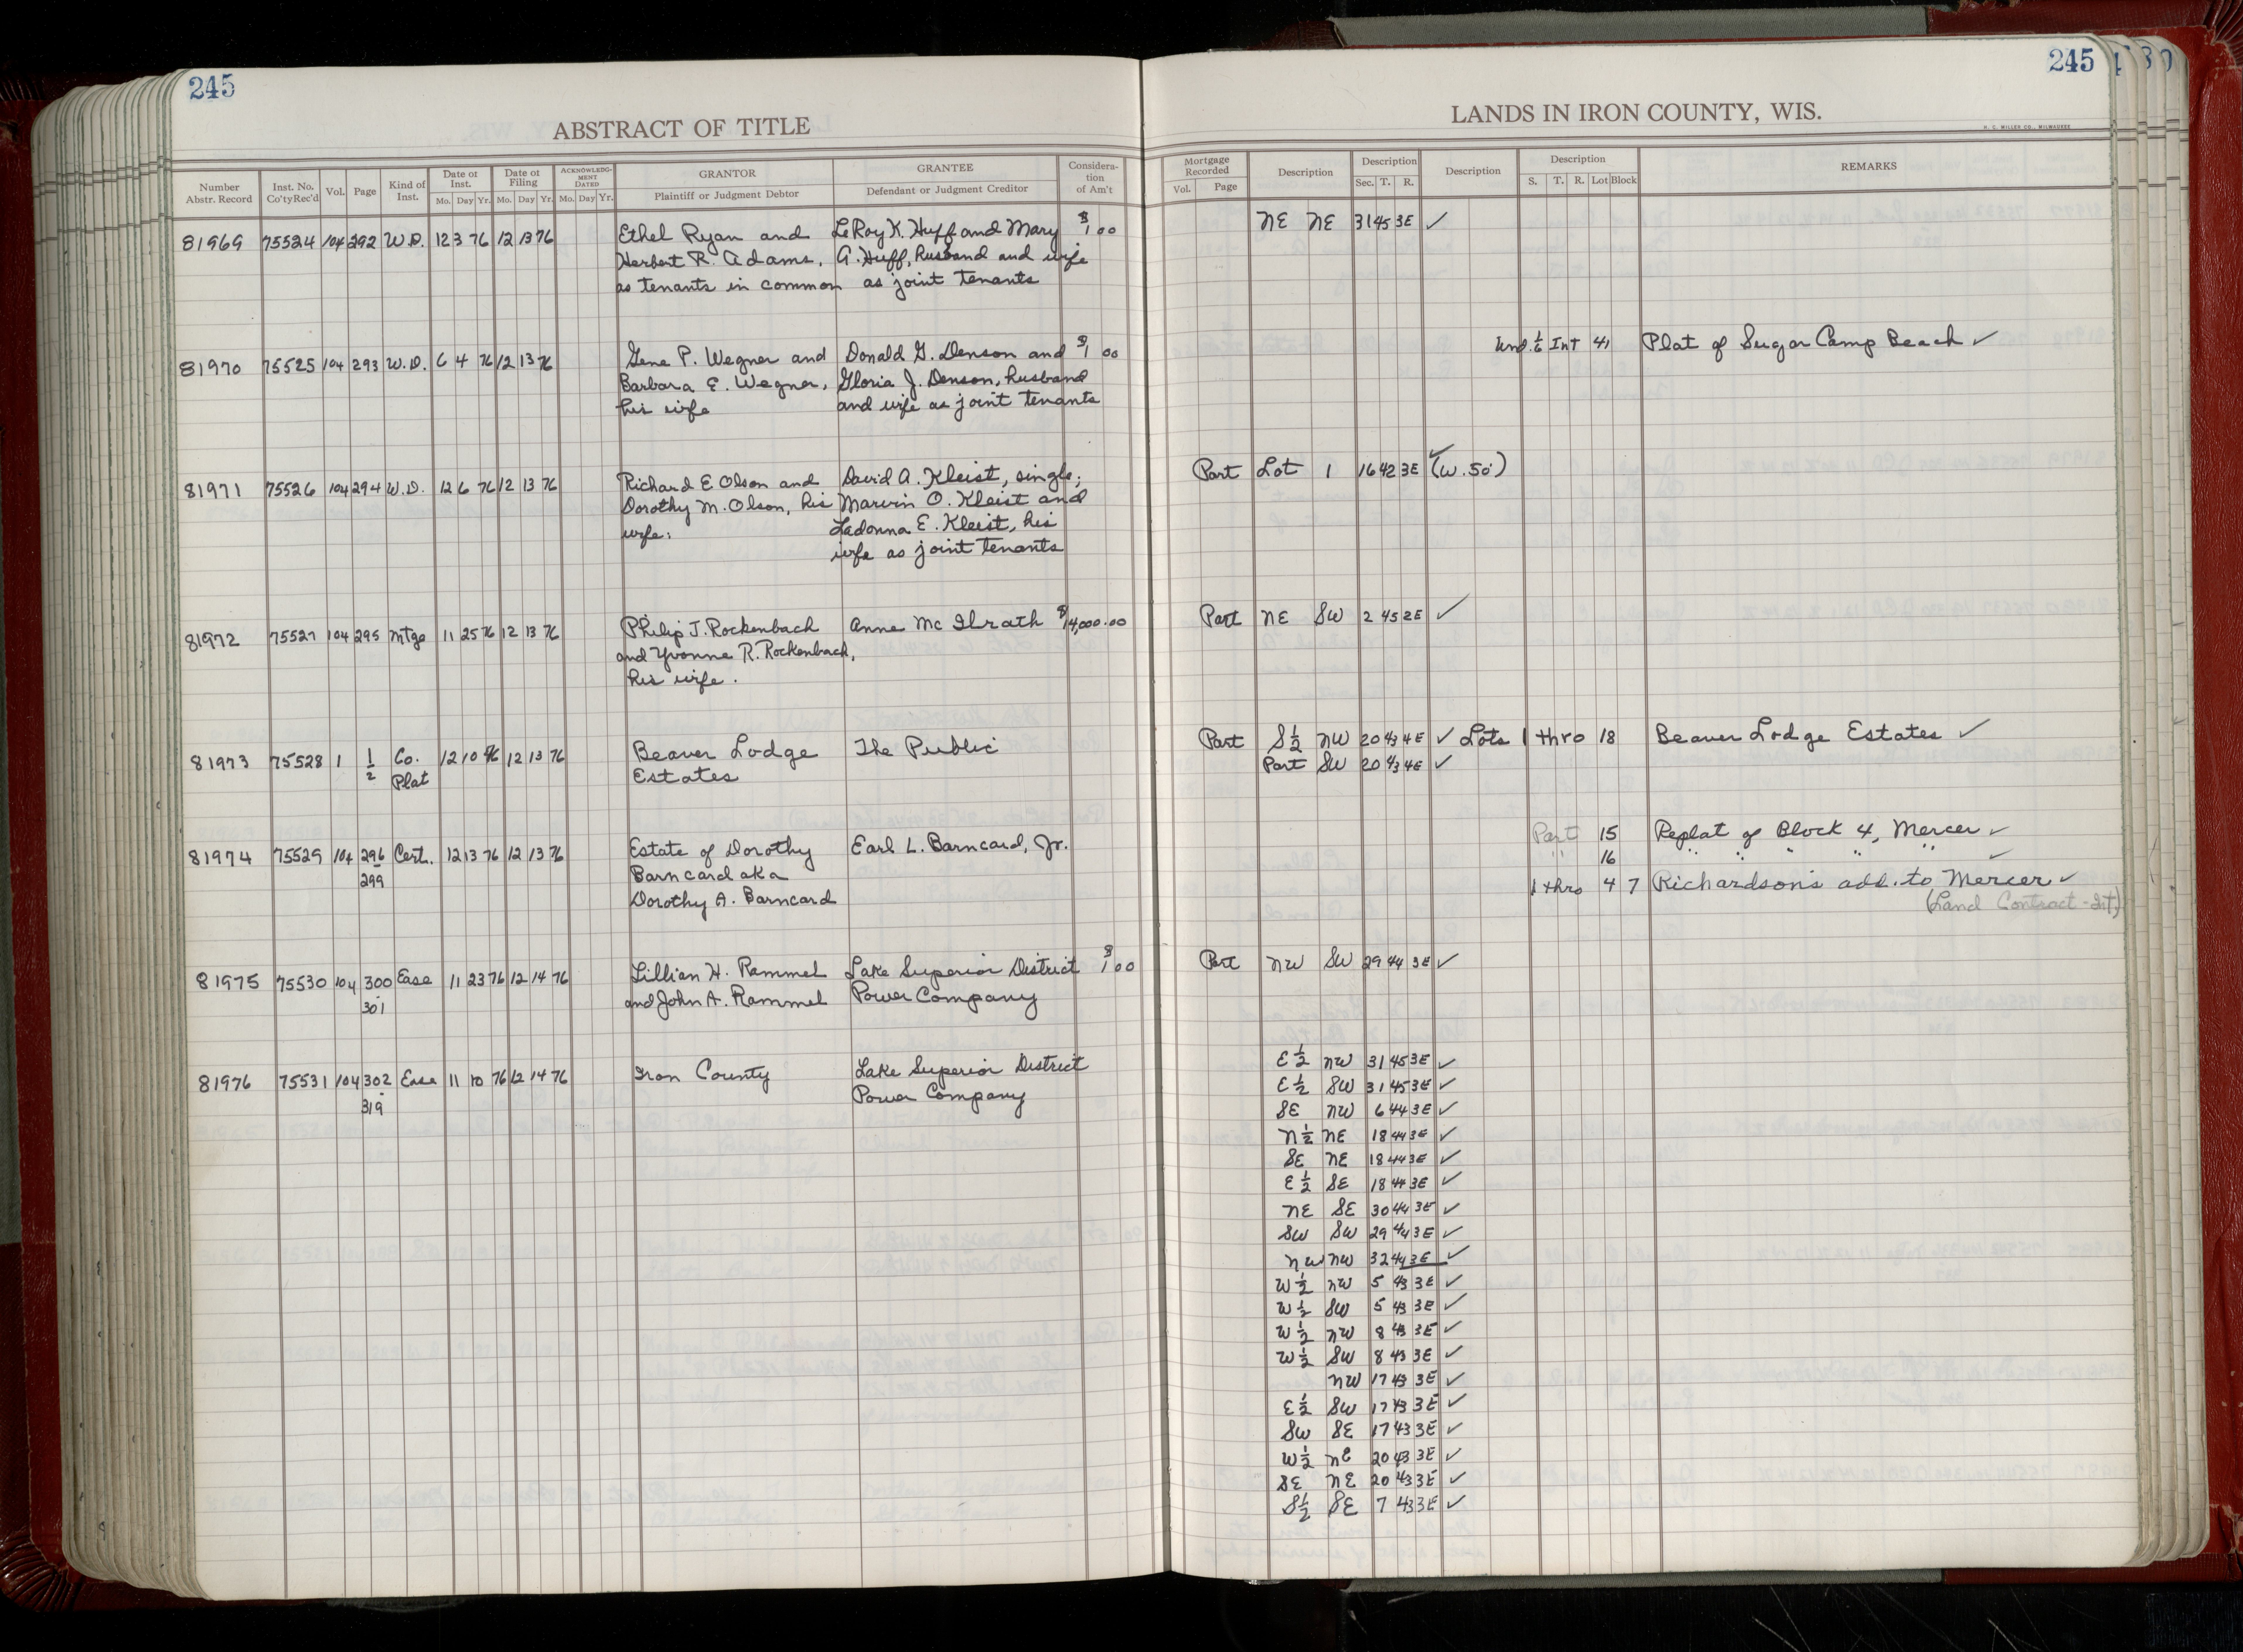 245
ABSTRACT OF TITLE
Number Abstr. Record | Inst. No. Co'ty Rec'd | Vol. | Page | Kind of Inst. | Date of Inst. Mo. Day Yr. | Date of Filing Mo. Day Yr. | ACKNOWLEDGMENT DATED Mo. Day Yr. | GRANTOR Plaintiff or Judgment Debtor | GRANTEE Defendant or Judgment Creditor | Consideration of Am't
81969 75524 104 292 W.D. 12 3 76 12 13 76 Ethel Ryan and LeRoy K. Huff and Mary $1 00
Herbert R. Adams, A. Huff, husband and wife
as tenants in common as joint tenants
81970 75525 104 293 W.D. 6 4 76 12 13 76 Gene P. Wegner and Donald G. Denson and $1 00
Barbara E. Wegner, Gloria J. Denson, husband
his wife and wife as joint tenants
81971 75526 104 294 W.D. 12 6 76 12 13 76 Richard E Olson and David A. Kleist, single;
Dorothy M. Olson, his Marvin O. Kleist and
wife: Ladonna E. Kleist, his
wife as joint tenants
81972 75527 104 295 Mtge 11 25 76 12 13 76 Philip J. Rockenbach Anne Mc Ilrath $14,000.00
and Yvonne R. Rockenbach,
his wife.
81973 75528 1 1/2 Co. Plat 12 10 76 12 13 76 Beaver Lodge The Public
Estates
81974 75529 104 296 Cert. 12 13 76 12 13 76 Estate of Dorothy Earl L. Barncard, Jr.
299 Barncard aka
Dorothy A. Barncard
81975 75530 104 300 Ease 11 23 76 12 14 76 Lillian H. Rammel Lake Superior District $1 00
301 and John A. Rammel Power Company
81976 75531 104 302 Ease 11 10 76 12 14 76 Iron County Lake Superior District
319 Power Company
245
LANDS IN IRON COUNTY, WIS.
H. C. MILLER CO., MILWAUKEE
Mortgage Recorded Vol. Page | Description | Description Sec. T. R. | Description | Description S. T. R. Lot Block | REMARKS
NE NE 31 45 3E ✓
Und. 1/6 Int 41 Plat of Sugar Camp Beach ✓
Part Lot 1 16 42 3E ✓ (W. 50')
Part NE SW 2 45 2E ✓
Part S½ NW 20 43 4E ✓ Lots 1 thro 18 Beaver Lodge Estates ✓
Part SW 20 43 4E ✓
Part 15 Replat of Block 4, Mercer ✓
" 16 " " " " " ✓
1 thro 4 7 Richardson's add. to Mercer ✓
(Land Contract - Int)
Part NW SW 29 44 3E ✓
E½ NW 31 45 3E ✓
E½ SW 31 45 3E ✓
SE NW 6 44 3E ✓
N½ NE 18 44 3E ✓
SE NE 18 44 3E ✓
E½ SE 18 44 3E ✓
NE SE 30 44 3E ✓
SW SW 29 44 3E ✓
NW NW 32 44 3E ✓
W½ NW 5 43 3E ✓
W½ SW 5 43 3E ✓
W½ NW 8 43 3E ✓
W½ SW 8 43 3E ✓
NW 17 43 3E ✓
E½ SW 17 43 3E ✓
SW SE 17 43 3E ✓
W½ NE 20 43 3E ✓
SE NE 20 43 3E ✓
S½ SE 7 43 3E ✓